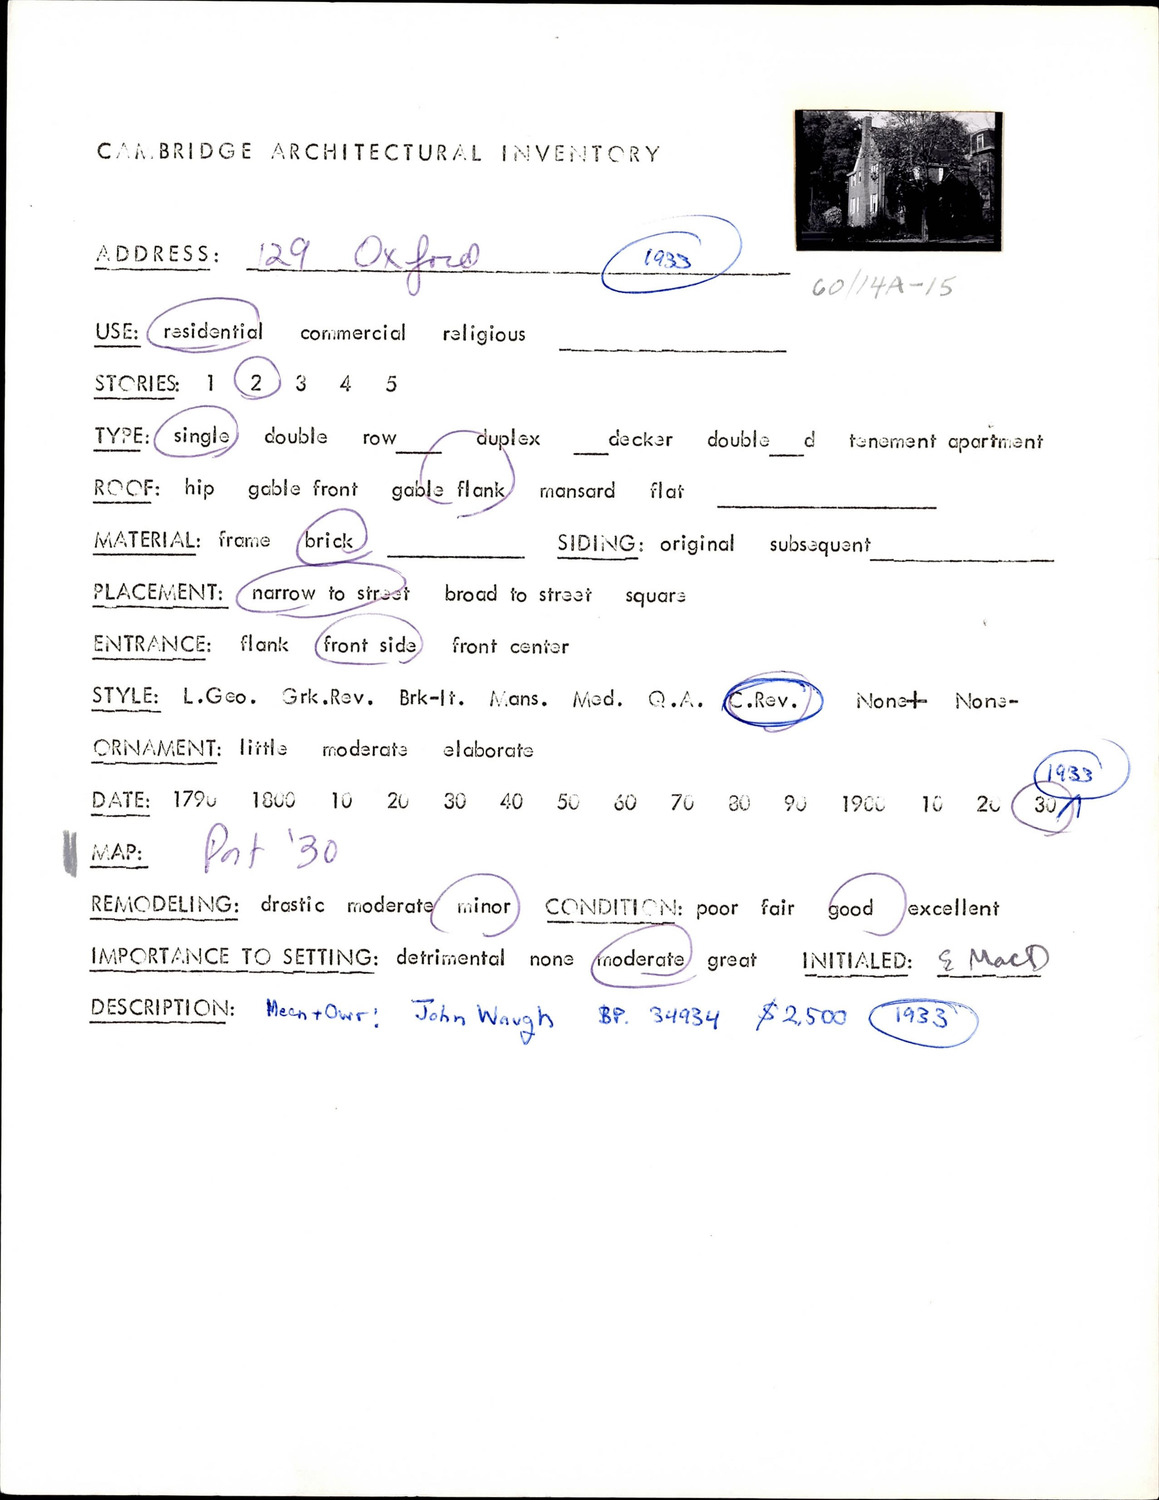 CAMBRIDGE ARCHITECTURAL INVENTORY
ADDRESS: 129 Oxford 1933
60/14A-15
USE: residential commercial religious
STORIES: 1 2 3 4 5
TYPE: single double row___ duplex ___decker double___d tenement apartment
ROOF: hip gable front gable flank mansard flat
MATERIAL: frame brick SIDING: original subsequent
PLACEMENT: narrow to street broad to street square
ENTRANCE: flank front side front center
STYLE: L.Geo. Grk.Rev. Brk-It. Mans. Med. Q.A. C.Rev. None+ None-
ORNAMENT: little moderate elaborate
1933
DATE: 1790 1800 10 20 30 40 50 60 70 80 90 1900 10 20 30
MAP: Post '30
REMODELING: drastic moderate minor CONDITION: poor fair good excellent
IMPORTANCE TO SETTING: detrimental none moderate great INITIALED: E MacD
DESCRIPTION: Mecn + Owr: John Waugh BP. 34934 $2,500 1933